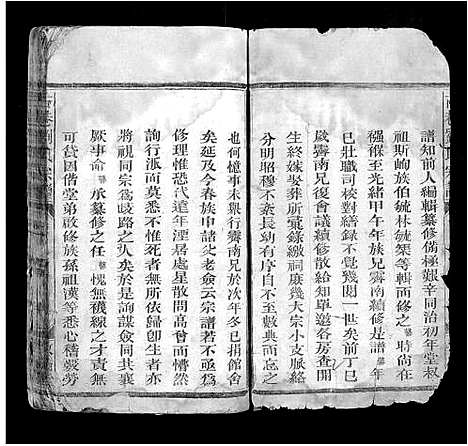 譜知前人編輯纂修備極艱辛同治初年堂叔
祖斯峋族伯毓林毓榘等輯而修之時尚在
襁褓至光緒甲午年族兄霽南續修是譜年
已壯職司校對繕錄不覺幾閱一世矣前丁巳
歲霽南兄復會議續修散給知單邀各房查開
生終嫁娶葬所彙錄繳祠庶幾大宗小支脈絡
分明昭穆不紊長幼有序自不至數典而忘之
也何憶事未舉行霽南兄於次年冬已捐館舍
矣延及于今春族中諸父老僉云宗譜若不亟為
修理惟恐代遠年湮居處星散問高曾而莫
詢行派而莫悉不惟死者無所依歸即生者亦
將視同宗為歧路之人矣於是詢謀僉同共襄
厥事命承纂修之任愧無襪線之才責無
可貸因偕堂弟啟修族孫祖漢等悉心稽覈勞